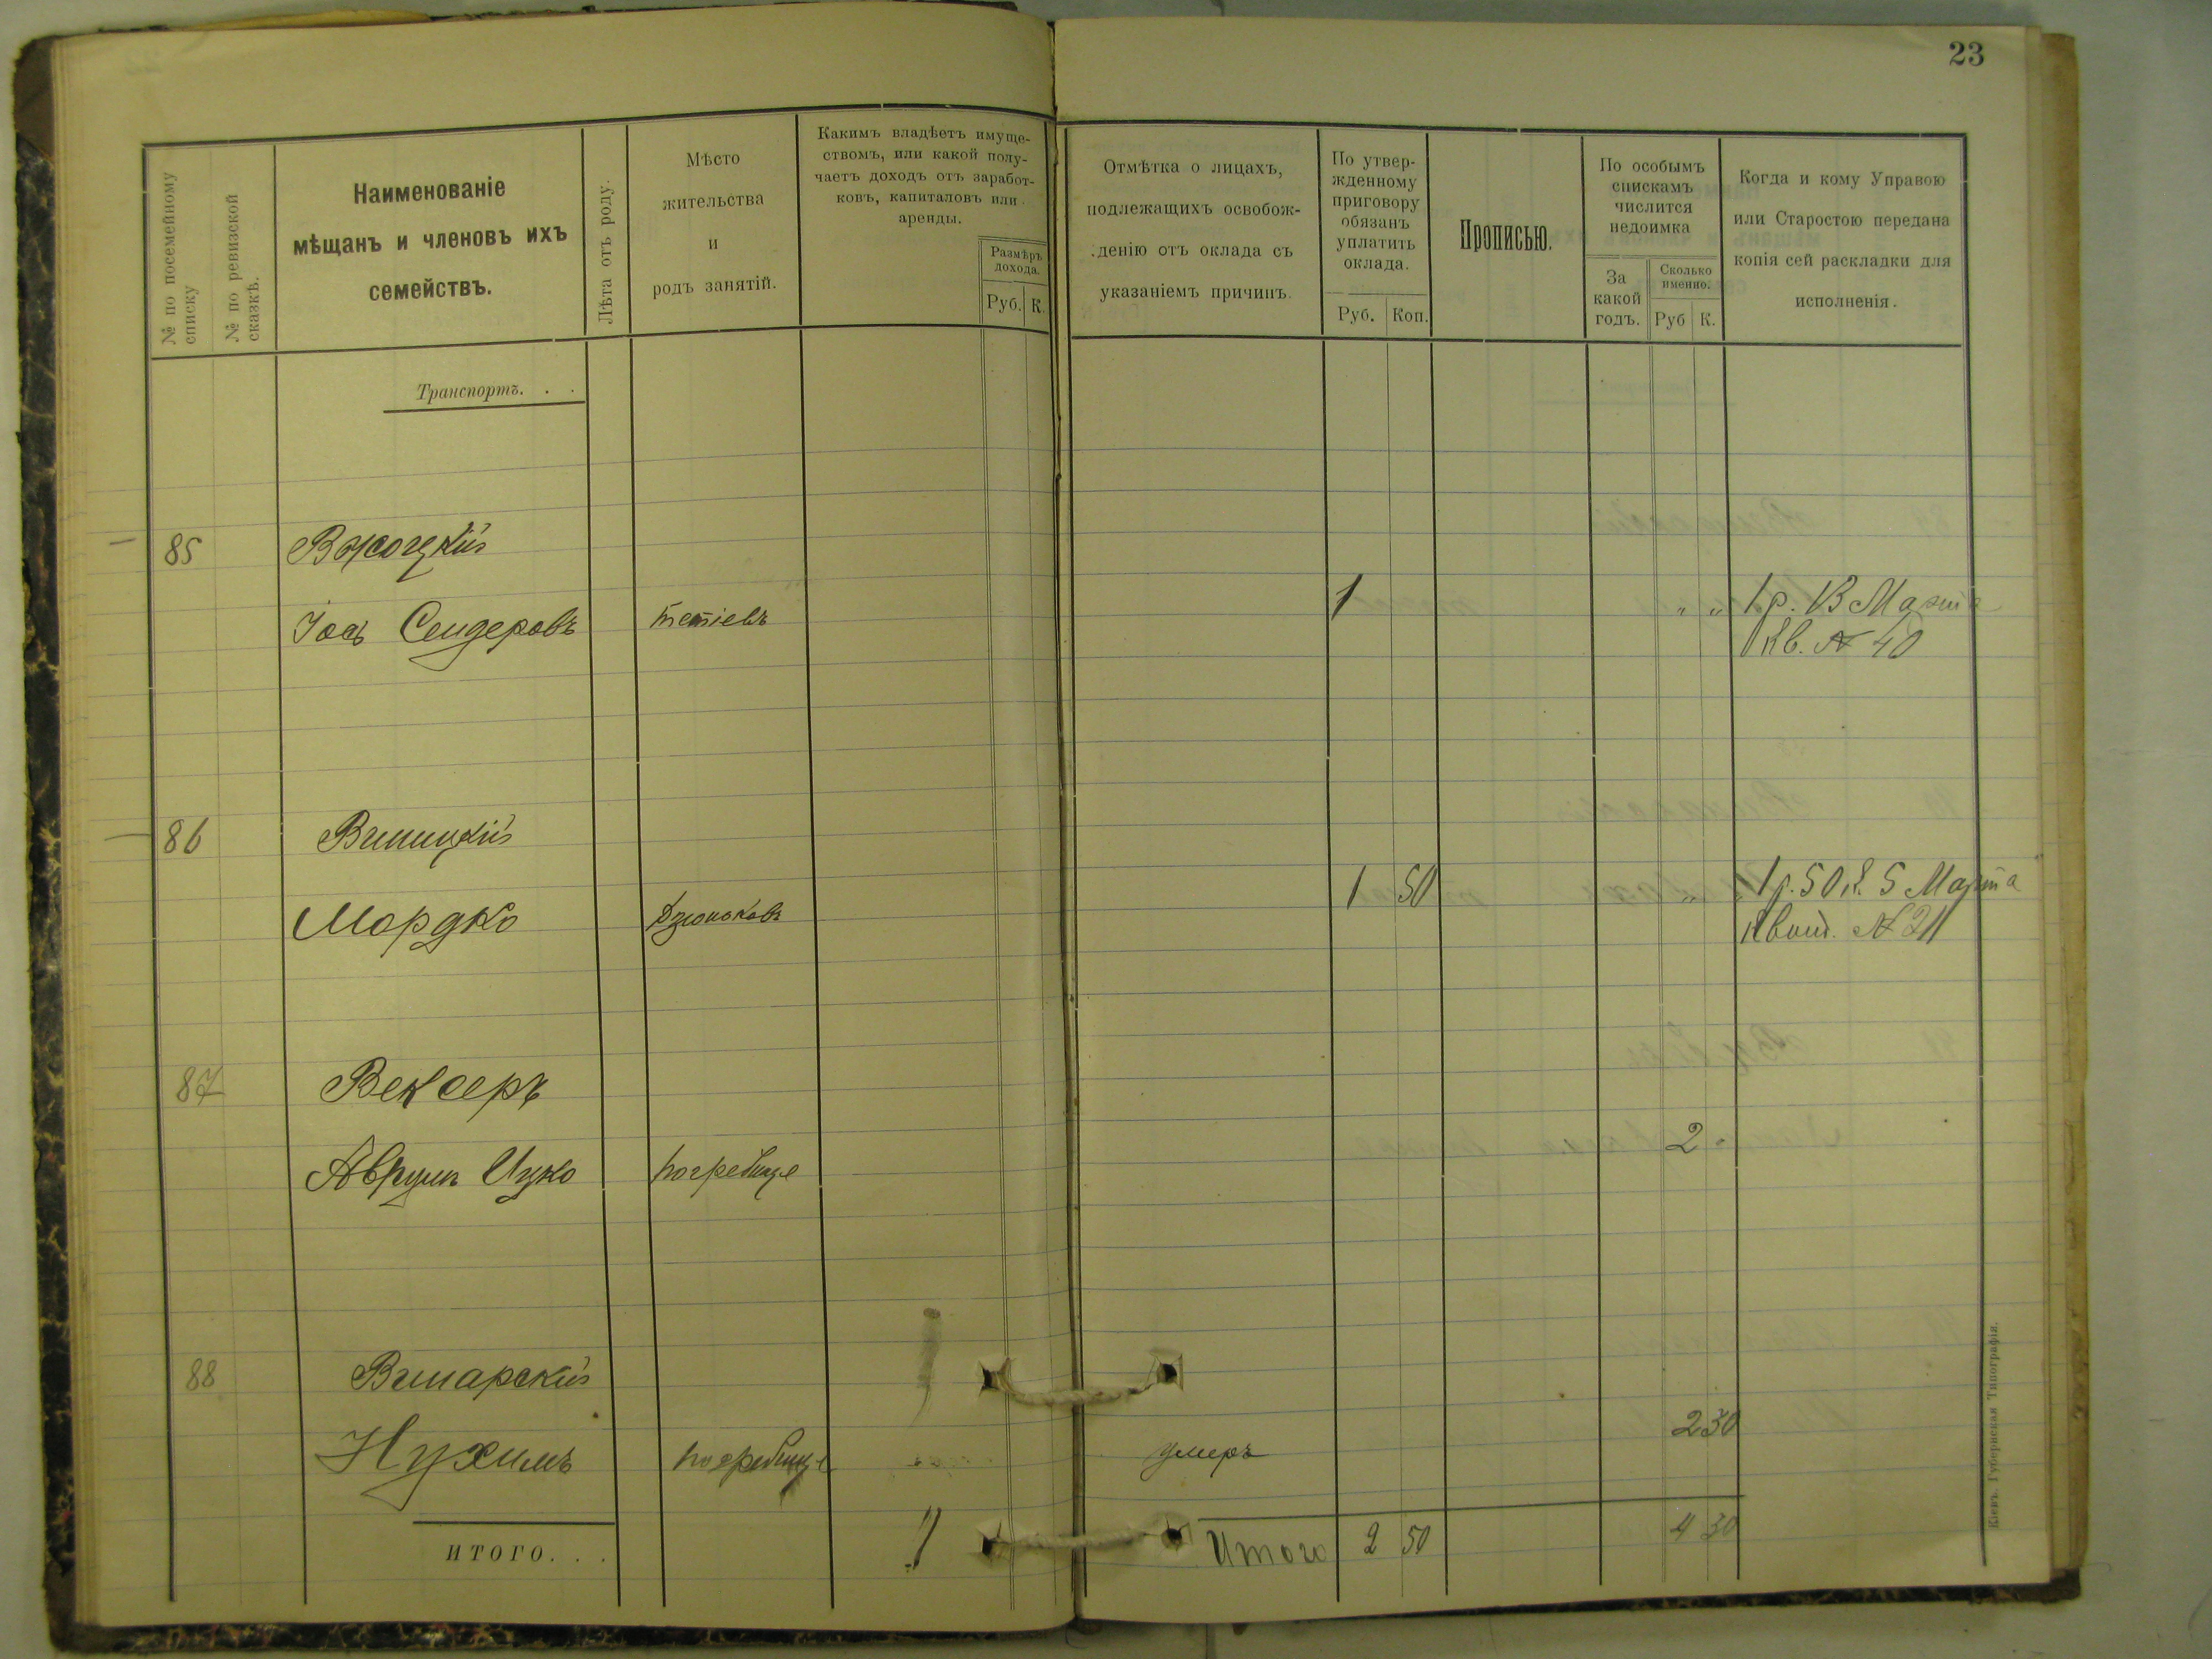 23
№ по посемейному списку
№ по ревизской сказкѣ.
Наименованіе
мѣщанъ и членовъ ихъ
семействъ.
Лѣта отъ роду.
Мѣсто
жительства
и
родъ занятій.
Какимъ владѣетъ имуще-
ствомъ, или какой полу-
чаетъ доходъ отъ заработ-
ковъ, капиталовъ или
аренды.
Размѣръ
дохода.
Руб. К.
Отмѣтка о лицахъ,
подлежащихъ освобож-
денію отъ оклада съ
указаніемъ причинъ.
По утвер-
жденному
приговору
обязанъ
уплатить
оклада.
Руб. Коп.
Прописью.
По особымъ
спискамъ
числится
недоимка
За
какой
годъ.
Сколько
именно.
Руб К.
Когда и кому Управою
или Старостою передана
копія сей раскладки для
исполненія.
Транспортъ. . .
85
Іось Сендеровъ тетіевъ 1 " " 1 р. 13 Марта
Кв. № 40
86 Виницкій
Мордко Дзюньковъ 1 50 " 1 р. 50 к. 5 Марта
Квит. № 211
87 Вексеръ
Аврумъ Ицко погребище 2 "
88 Винарскій
Нухимъ погребище умеръ 2 30
ИТОГО. . . Итого 2 50 4 30
Кіевъ. Губернская Типографія.